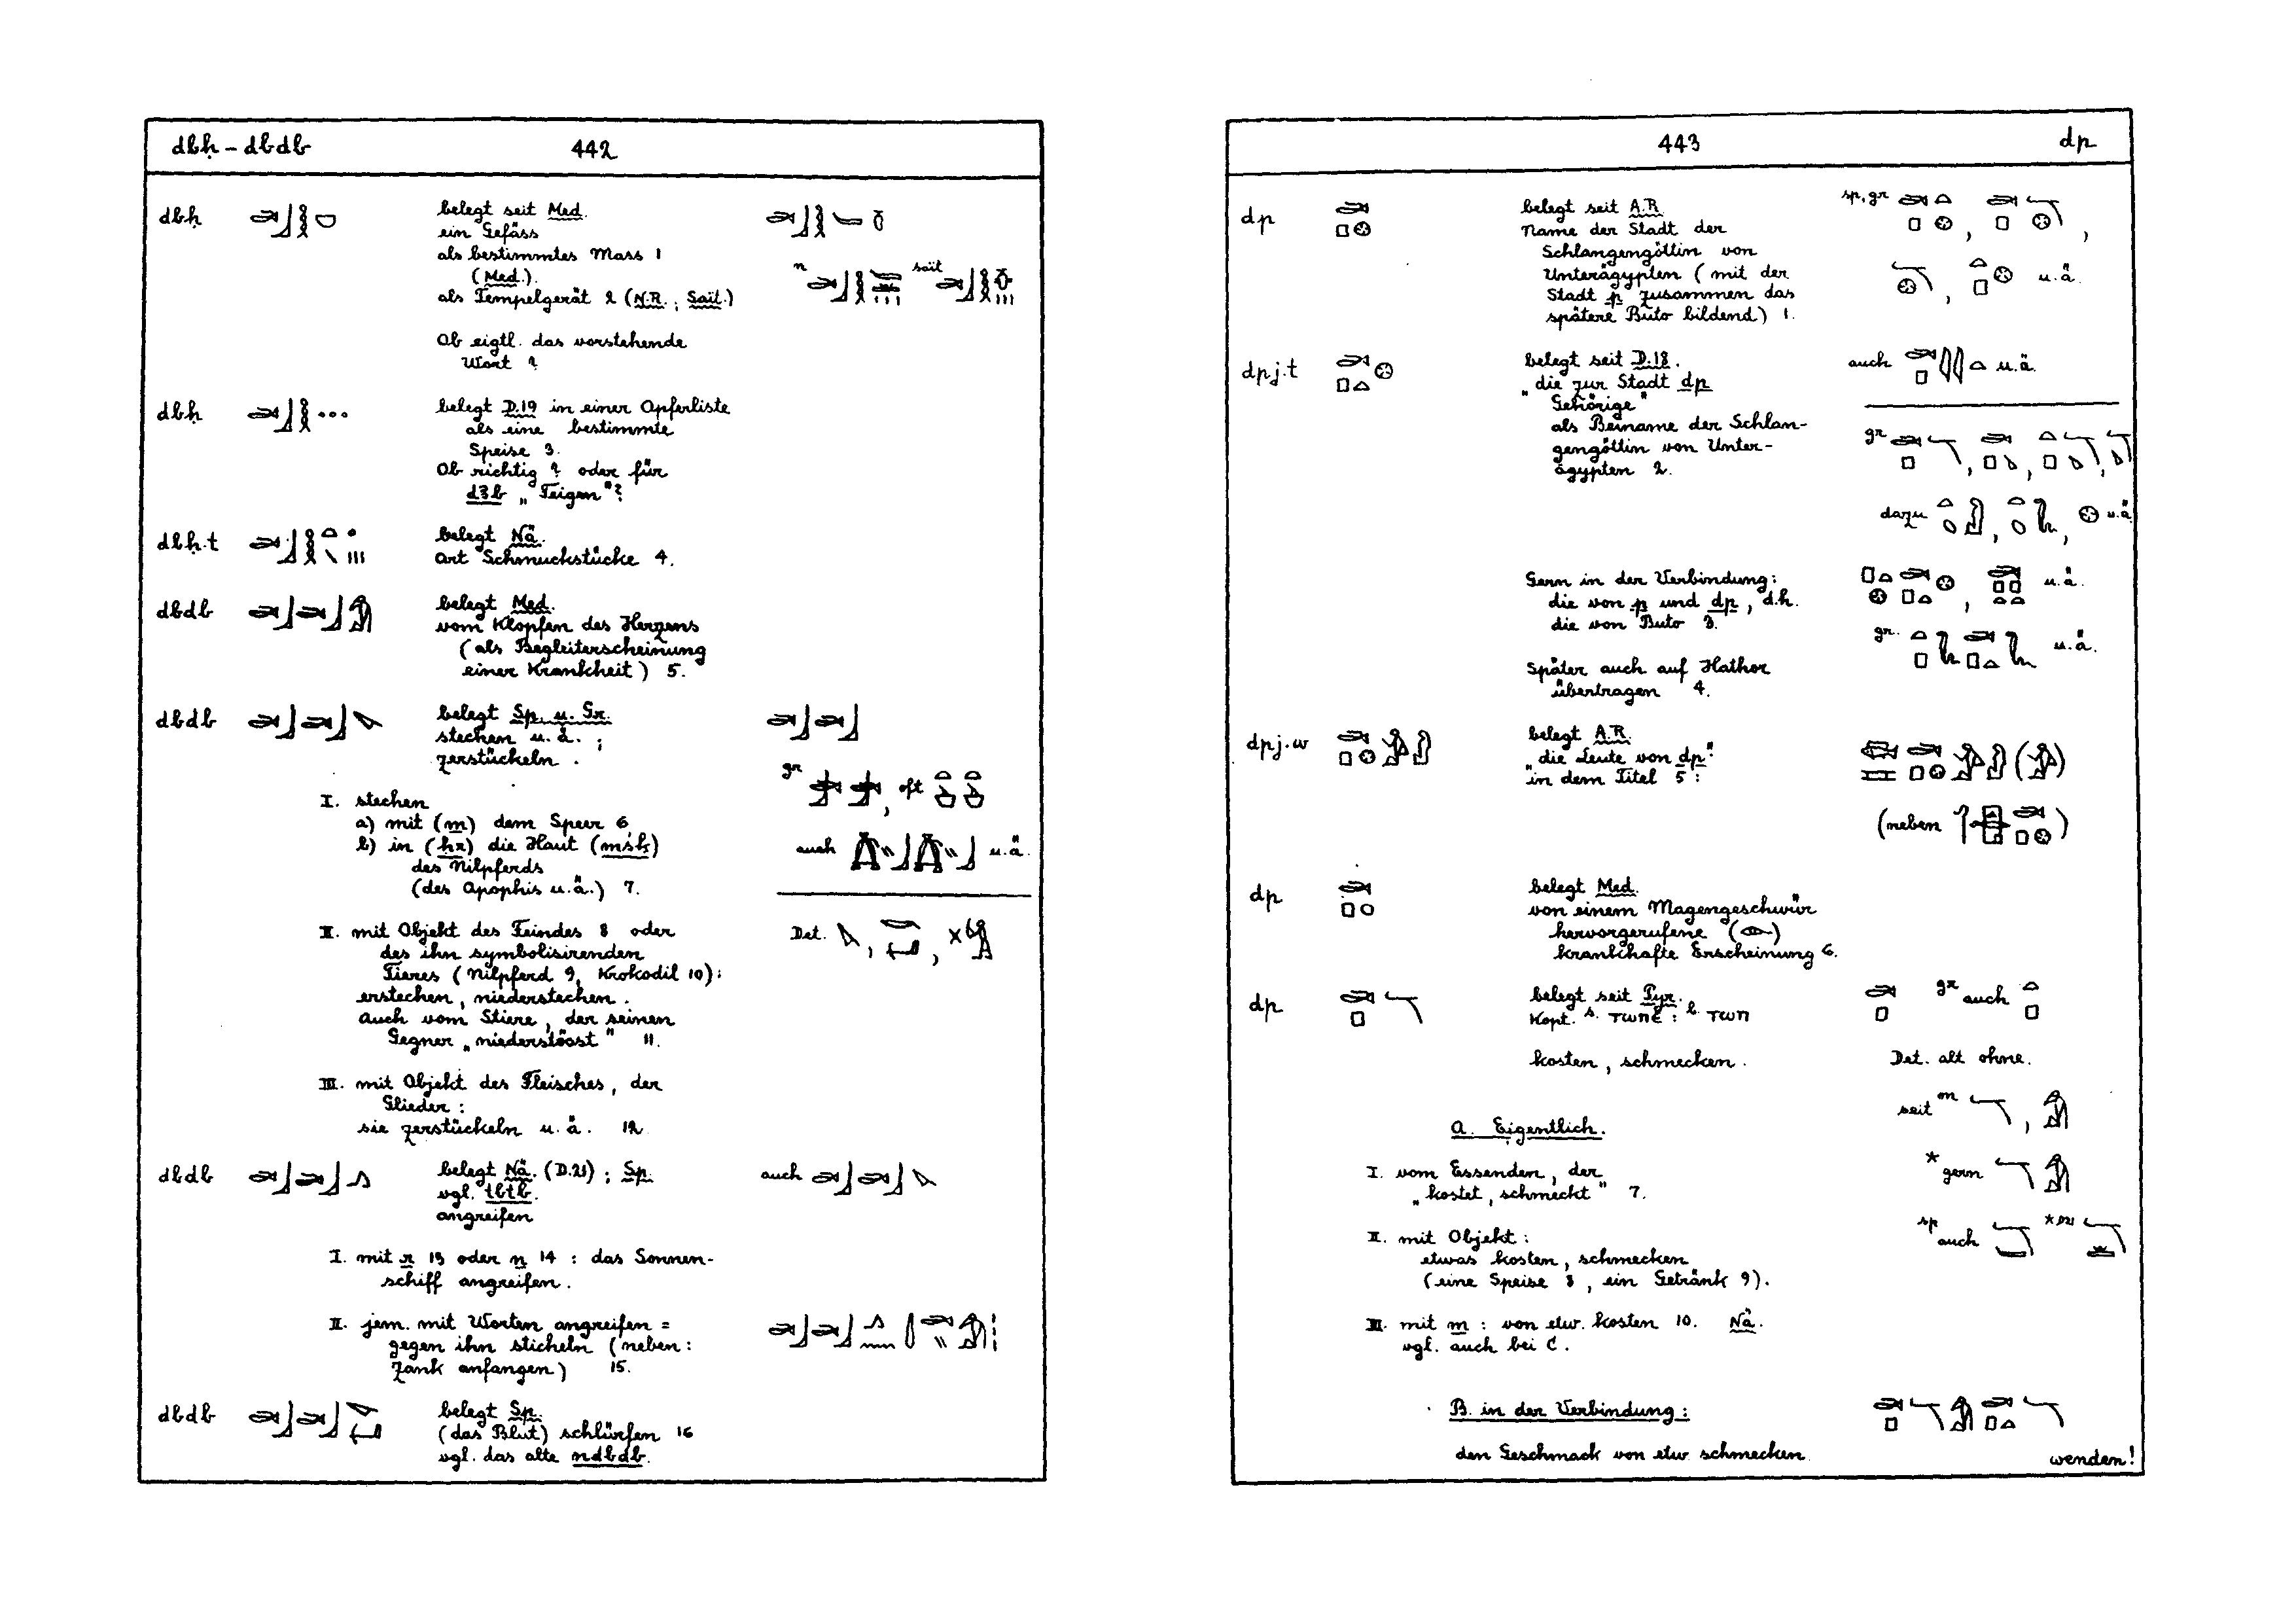 dbḥ – dbdb 442
dbḥ
belegt seit Med.
ein Gefäss
als bestimmtes Mass 1
(Med.).
als Tempelgerät 2 (N.R.; Sait.)
n sait
Ob eigtl. das vorstehende
Wort?
dbḥ
belegt D.19 in einer Opferliste
als eine bestimmte
Speise 3.
Ob richtig? oder für
dꜣb „Feigen"?
dbḥ.t
belegt Nä.
Art Schmuckstücke 4.
dbdb
belegt Med.
vom Klopfen des Herzens
(als Begleiterscheinung
einer Krankheit) 5.
dbdb
belegt Sp. u. Gr.
stechen u. ä. ;
zerstückeln .
gr , oft
auch u. ä.
I. stechen
a) mit (m) dem Speer 6
b) in (ḥr) die Haut (mśk)
des Nilpferds
(des Apophis u. ä.) 7.
Det. , ,
II. mit Objekt des Feindes 8 oder
des ihn symbolisirenden
Tieres (Nilpferd 9, Krokodil 10):
erstechen, niederstechen.
Auch vom Stiere, der seinen
Gegner „niederstösst" 11.
III. mit Objekt des Fleisches, der
Glieder:
sie zerstückeln u. ä. 12
dbdb
belegt Nä. (D.21) ; Sp.
auch
vgl. tbtb.
angreifen
I. mit r 13 oder n 14 : das Sonnen-
schiff angreifen.
II. jem. mit Worten angreifen =
gegen ihn sticheln (neben:
Zank anfangen) 15.
dbdb
belegt Sp.
(das Blut) schlürfen 16
vgl. das alte ndbdb.
443 dp
dp
belegt seit A.R.
Name der Stadt der
Schlangengöttin von
Unterägypten (mit der
Stadt p zusammen das
spätere Buto bildend) 1.
sp, gr , ,
, u. ä.
dpj.t
belegt seit D.18.
„die zur Stadt dp
Gehörige"
als Beiname der Schlan-
gengöttin von Unter-
ägypten 2.
auch u. ä.
gr , , ,
dazu , , u. ä.
Gern in der Verbindung:
die von p und dp, d.h.
die von Buto 3.
, u. ä.
gr. u. ä.
Später auch auf Hathor
übertragen 4.
dpj.w
belegt A.R.
„die Leute von dp"
in dem Titel 5:
( )
(neben )
dp
belegt Med.
von einem Magengeschwür
hervorgerufene ( )
krankhafte Erscheinung 6.
dp
belegt seit Pyr.
Kopt. s. ⲧⲱⲡⲉ : b. ⲧⲱⲡ
gr auch
kosten, schmecken.
Det. alt ohne.
seit m ,
* gern
sp auch * D21
A. Eigentlich.
I. vom Essenden, der
„kostet, schmeckt" 7.
II. mit Objekt:
etwas kosten, schmecken
(eine Speise 8, ein Getränk 9).
III. mit m : von etw. kosten 10. Nä.
vgl. auch bei C.
B. in der Verbindung:
den Geschmack von etw schmecken
wenden!